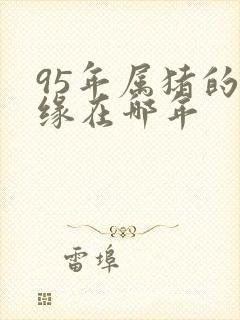 95年属猪的
缘在哪年
雷埠